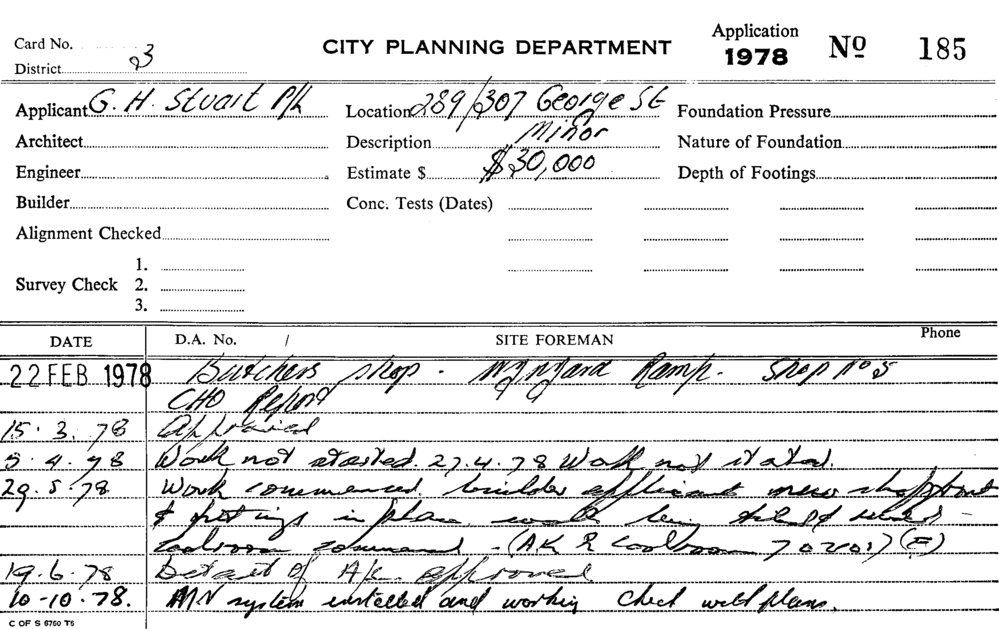 Card No.
District 3
CITY PLANNING DEPARTMENT
Application
1978 No 185
Applicant G. H. Stuart P/L
Location 289/307 George St
Foundation Pressure
Architect
Description Minor
Nature of Foundation
Engineer
Estimate $ $30,000
Depth of Footings
Builder
Conc. Tests (Dates)
Alignment Checked
Survey Check 1.
2.
3.
DATE D.A. No. / SITE FOREMAN Phone
22 FEB 1978 Butchers shop - Wynyard Ramp. Shop No 5
CHO Report
15.3.78 Approved
5.4.78 Work not started. 27.4.78 Work not started.
29.5.78 Work commenced. builder applicant new shopfront
& fittings in place walls being tiled &
coolroom
19.6.78 Details of A/c approved
10-10-78. M/V system installed and working Check with plans.
C OF S 6760 T5